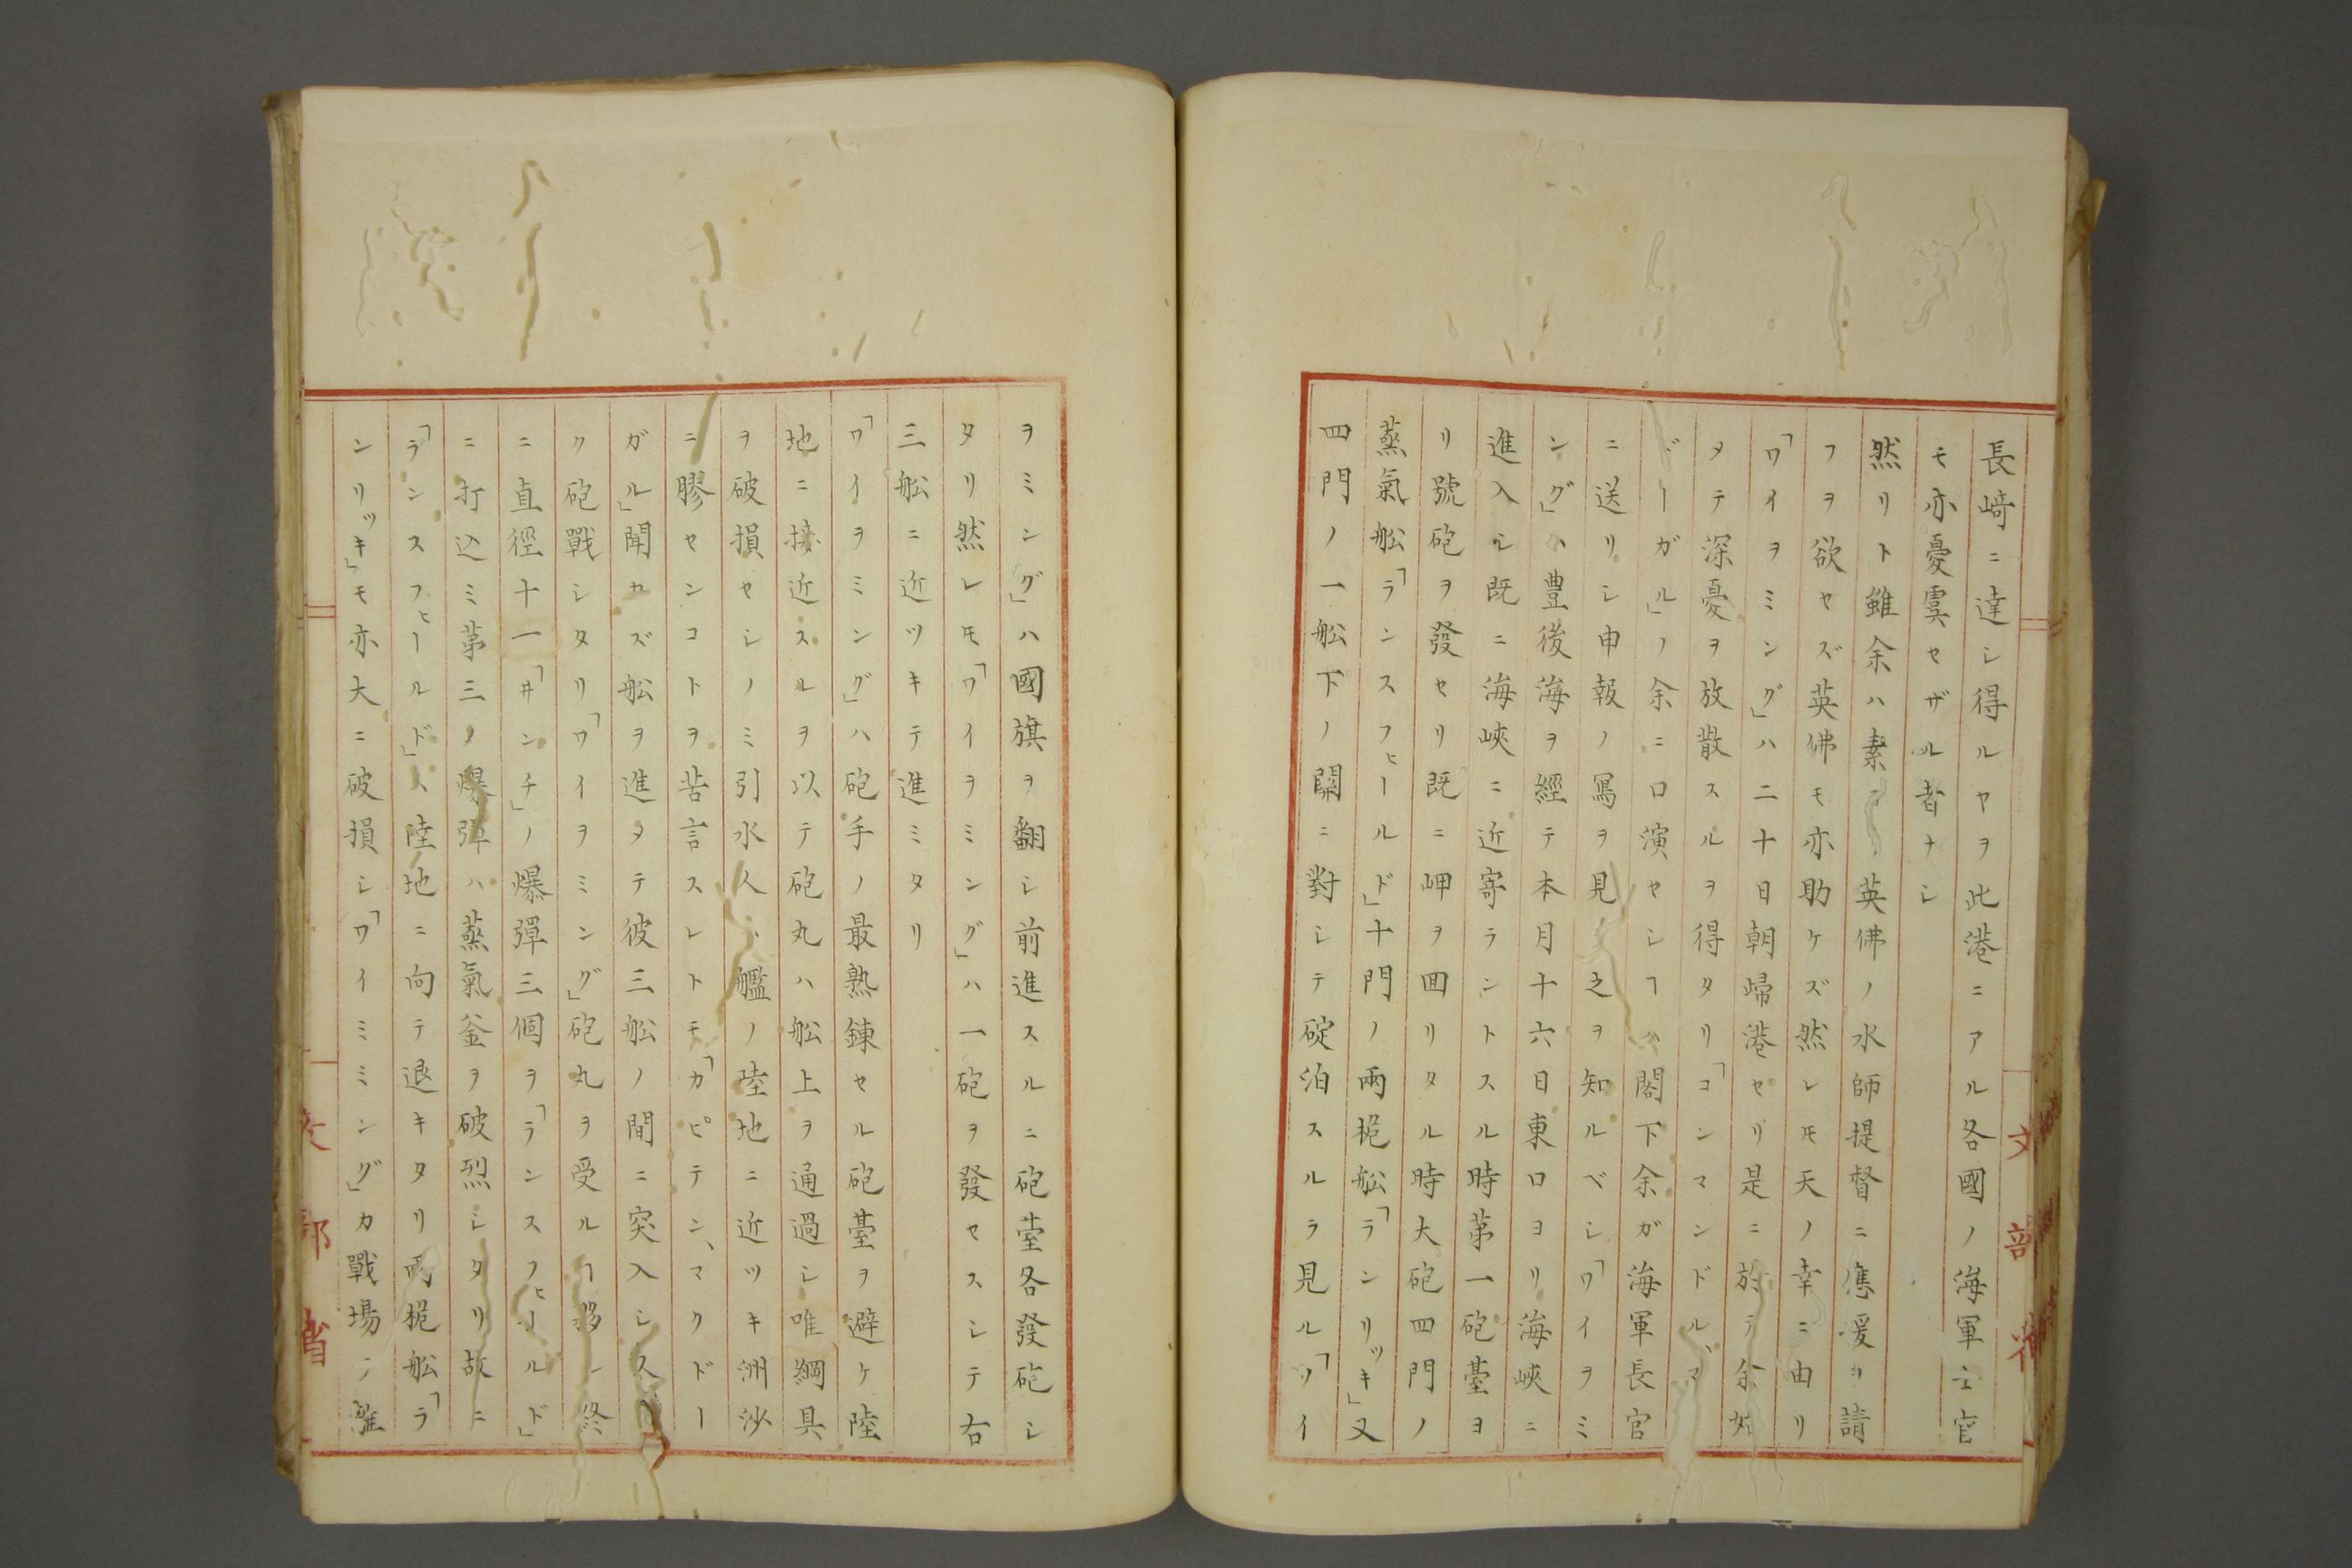 長﨑ニ達シ得ルヤヲ此港ニアル各國ノ海軍士官
モ亦憂虞セザル者ナシ
然リト雖余ハ素英佛ノ水師提督ニ應援ヲ請
フヲ欲セズ英佛モ亦助ケズ然レ𪜈天ノ幸ニ由リ
「ワイヲミング」ハ二十日朝帰港セリ是ニ於テ余始
メテ深憂ヲ放散スルヲ得タリ「コンマンドル、マ
ドーガル」ノ余ニ口演セシヿハ閣下余ガ海軍長官
ニ送リシ申報ノ寫ヲ見之ヲ知ルベシ「ワイヲミ
ング」ハ豊後海ヲ經テ本月十六日東口ヨリ海峽ニ
進入シ既ニ海峽ニ近寄ラントスル時第一砲臺ヨ
リ號砲ヲ發セリ既ニ岬ヲ囬リタル時大砲四門ノ
蒸氣船「ランスフヒールド」十門ノ兩桅船「ランリッキ」又
四門ノ一船下ノ關ニ對シテ碇泊スルヲ見ル「ワイ
ヲミング」ハ國旗ヲ翻シ前進スルニ砲䑓各發砲シ
タリ然レ𪜈「ワイヲミング」ハ一砲ヲ發セスシテ右
三船ニ近ツキテ進ミタリ
「ワイヲミング」ハ砲手ノ最熟錬セル砲臺ヲ避ケ陸
地ニ接近スルヲ以テ砲丸ハ船上ヲ通過シ唯綱具
ヲ破損セシノミ引水人ハ艦ノ陸地ニ近ツキ洲沙
ニ膠センコトヲ苦言スレトモ「カピテン、マクドー
ガル」聞カズ船ヲ進メテ彼三船ノ間ニ突入シ
ク砲戰シタリ「ワイヲミング」砲丸ヲ受ルヿ移シ終
ニ直徑十一「ヰンチ」ノ爆彈三個ヲ「ランスフヒールド」
ニ打込ミ第三ノ爆彈ハ蒸氣釜ヲ破烈シタリ故ニ
「ランスフヒールド」ハ陸地ニ向テ退キタリ兩桅船「ラ
ンリッキ」モ亦大ニ破損シ「ワイミミング」カ戰場ヲ離
文部省
文部省